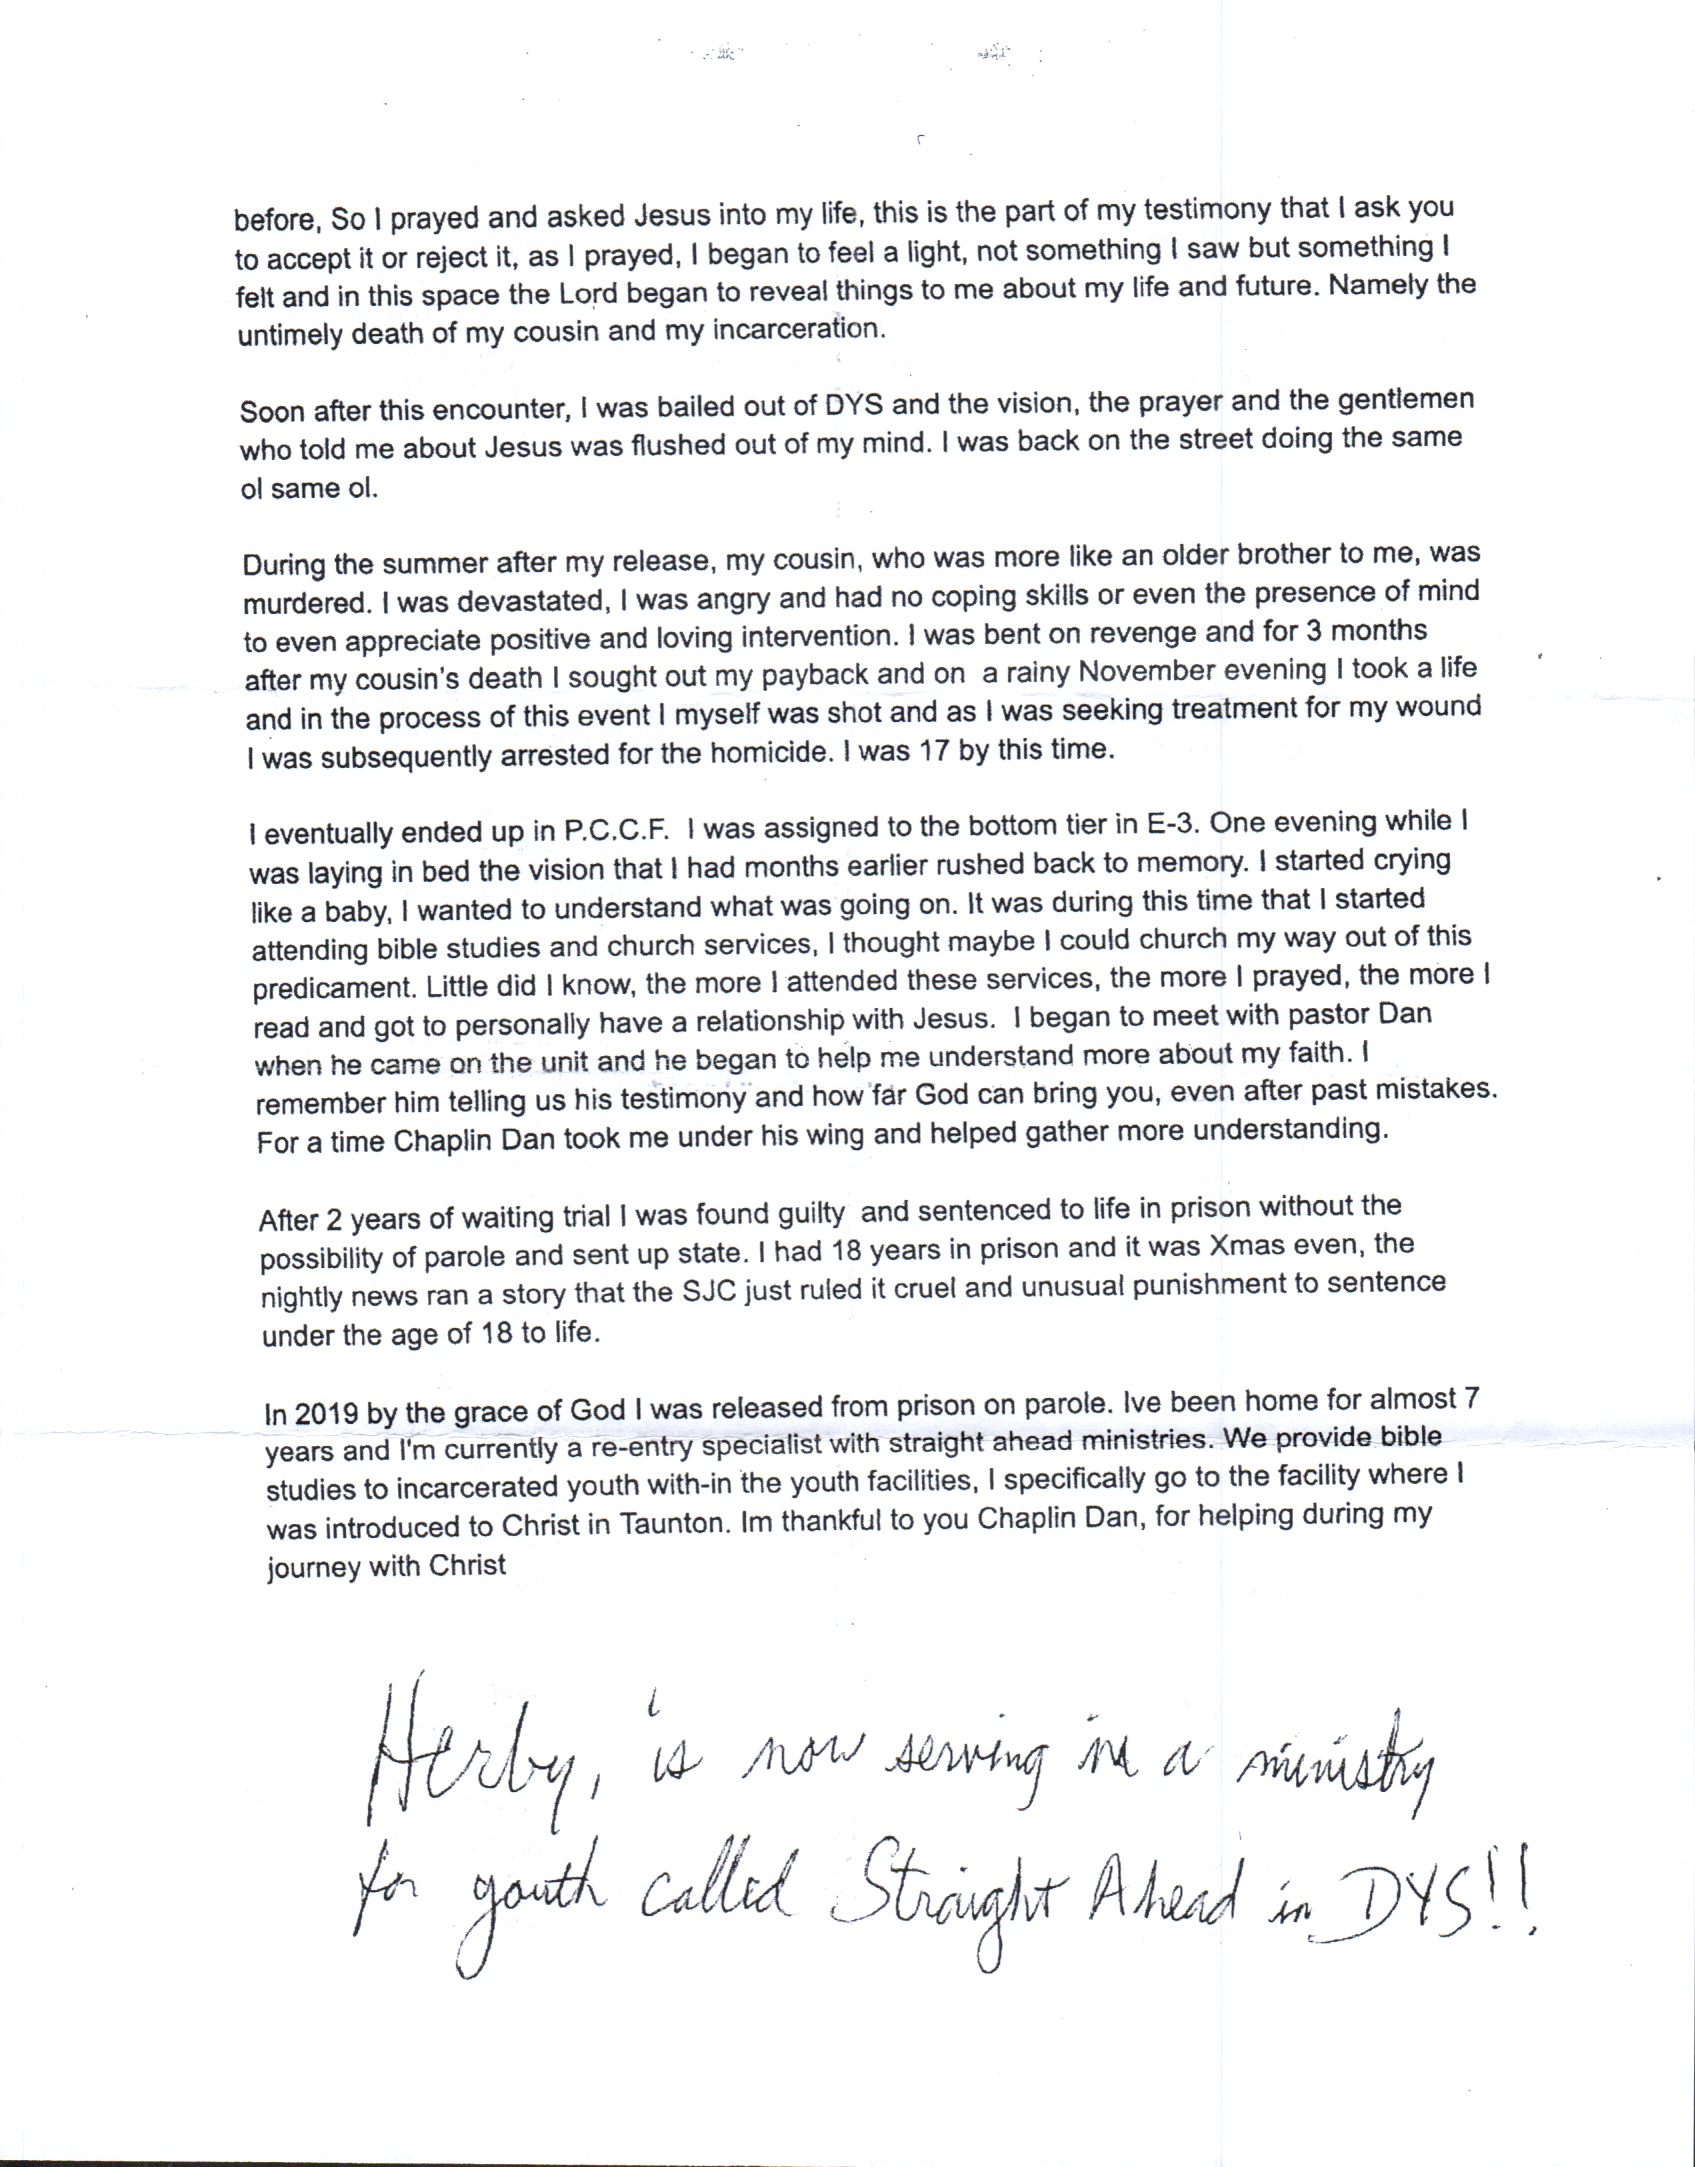 before, So I prayed and asked Jesus into my life, this is the part of my testimony that I ask you
to accept it or reject it, as I prayed, I began to feel a light, not something I saw but something I
felt and in this space the Lord began to reveal things to me about my life and future. Namely the
untimely death of my cousin and my incarceration.
Soon after this encounter, I was bailed out of DYS and the vision, the prayer and the gentlemen
who told me about Jesus was flushed out of my mind. I was back on the street doing the same
ol same ol.
During the summer after my release, my cousin, who was more like an older brother to me, was
murdered. I was devastated, I was angry and had no coping skills or even the presence of mind
to even appreciate positive and loving intervention. I was bent on revenge and for 3 months
after my cousin's death I sought out my payback and on  a rainy November evening I took a life
and in the process of this event I myself was shot and as I was seeking treatment for my wound
I was subsequently arrested for the homicide. I was 17 by this time.
I eventually ended up in P.C.C.F.  I was assigned to the bottom tier in E-3. One evening while I
was laying in bed the vision that I had months earlier rushed back to memory. I started crying
like a baby, I wanted to understand what was going on. It was during this time that I started
attending bible studies and church services, I thought maybe I could church my way out of this
predicament. Little did I know, the more I attended these services, the more I prayed, the more I
read and got to personally have a relationship with Jesus.  I began to meet with pastor Dan
when he came on the unit and he began to help me understand more about my faith. I
remember him telling us his testimony and how far God can bring you, even after past mistakes.
For a time Chaplin Dan took me under his wing and helped gather more understanding.
After 2 years of waiting trial I was found guilty  and sentenced to life in prison without the
possibility of parole and sent up state. I had 18 years in prison and it was Xmas even, the
nightly news ran a story that the SJC just ruled it cruel and unusual punishment to sentence
under the age of 18 to life.
In 2019 by the grace of God I was released from prison on parole. Ive been home for almost 7
years and I'm currently a re-entry specialist with straight ahead ministries. We provide bible
studies to incarcerated youth with-in the youth facilities, I specifically go to the facility where I
was introduced to Christ in Taunton. Im thankful to you Chaplin Dan, for helping during my
journey with Christ
Herby, is now serving in a ministry
for youth called Straight Ahead in DYS!!